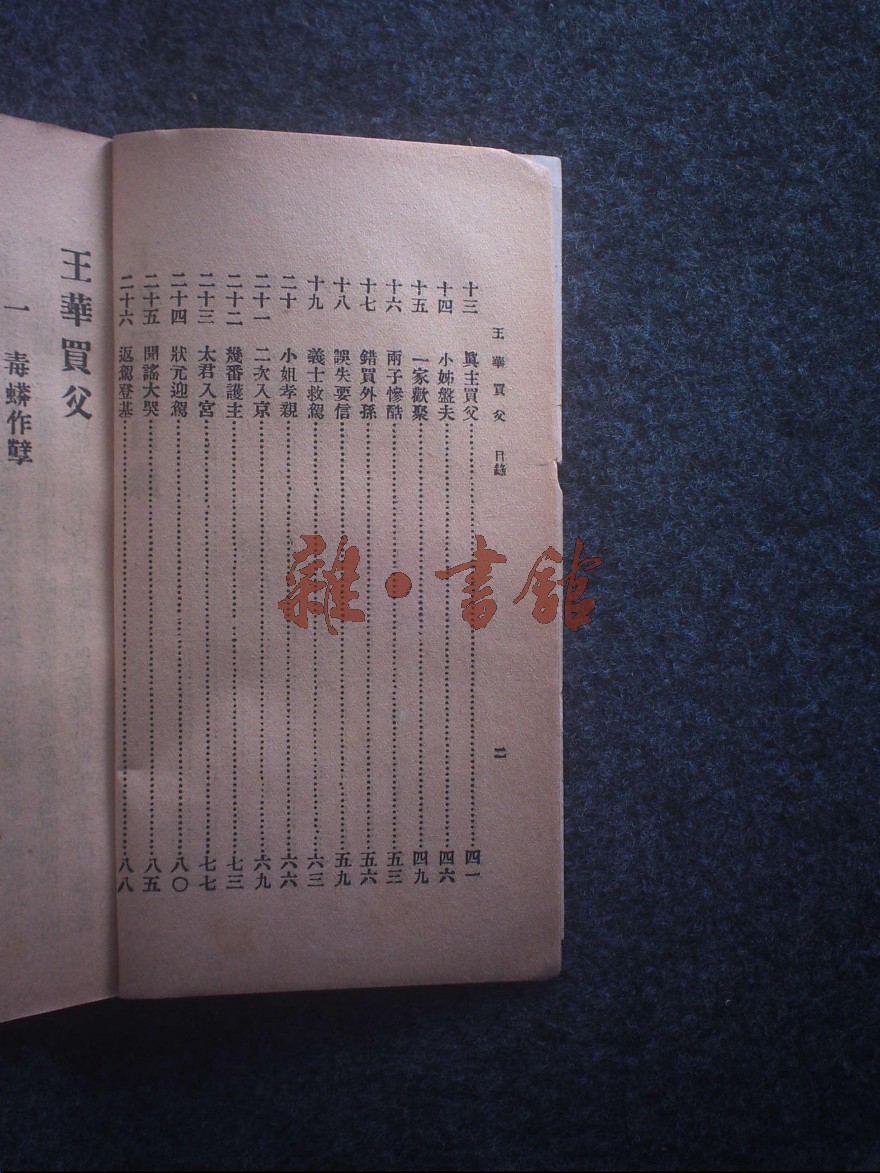 王華買父 目錄
十三 眞主買父 四一
十四 小姊盤夫 四六
十五 一家歡聚 四九
十六 兩子慘酷 五三
十七 錯買外孫 五六
十八 誤失要信 五九
十九 義士救駕 六三
二十 小姐孝親 六六
二十一 二次入京 六九
二十二 幾番護主 七三
二十三 太君入宮 七七
二十四 狀元迎駕 八〇
二十五 開謠大哭 八五
二十六 返駕登基 八八
二
王華買父
一 毒蟒作孽
雜·書館